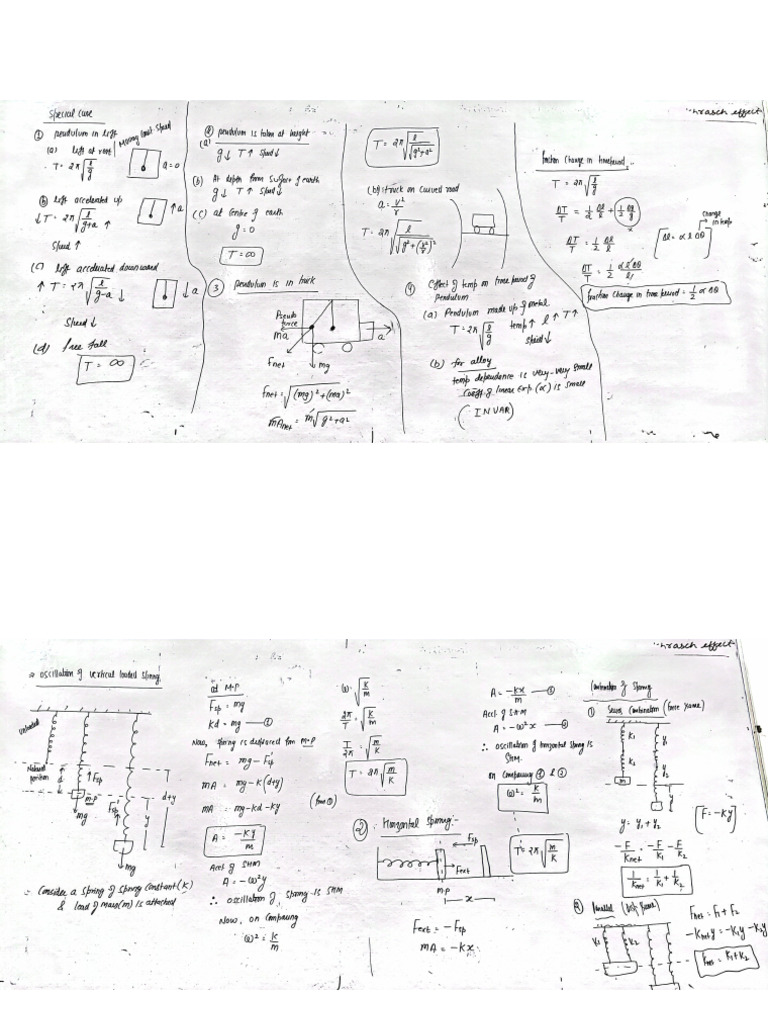 Special case
① pendulum in lift
(a) lift at rest / Moving const speed
T = 2π√(l/g)
a=0
(b) lift accelerated up
↓T = 2π√(l/(g+a)) ↑
↑a
Speed ↑
(c) lift accelerated downward
↑ T = 2π√(l/(g-a)) ↓
↓a
Speed ↓
(d) free fall
T = ∞
② pendulum is taken at height
(a) g↓ T↑ Speed↓
(b) At depth form surface of earth
g↓ T↑ Speed↓
(c) at centre of earth
g = 0
T = ∞
③ pendulum is in truck
Pseudo
force
ma
a
Fnet
mg
Fnet = √((mg)²+(ma)²)
mAnet = m√(g²+a²)
T = 2π√(l/√(g²+a²))
(b) struck on curved road
a = v²/r
T = 2π√(l/√(g²+(v²/r)²))
④ Effect of temp on time period of
pendulum
(a) Pendulum made up of metal
T = 2π√(l/g) temp↑ l↑ T↑
Speed↓
(b) for alloy
temp dependence is very-very small
coeff of linear exp (α) is small
(INVAR)
hrasch effect
fraction change in timeperiod..
T = 2π√(l/g)
ΔT/T = 1/2 Δl/l + 1/2 Δg/g
ΔT/T = 1/2 Δl/l
[Δl = α l Δθ]
change
in temp
ΔT/T = 1/2 αlΔθ/l
fraction change in time period = 1/2 α Δθ
hrasch effect
⇒ oscillation of vertical loaded spring
Unloaded
Natural
position
d
Fsp
M.P
mg
Fsp'
y
d+y
mg
⇒ Consider a spring of spring constant (K)
& load of mass (m) is attached
at M.P
Fsp = mg
Kd = mg —①
Now, spring is displaced from M.P
Fnet = mg - Fsp'
mA = mg - K(d+y)
mA = mg - Kd - Ky (from ①)
A = -Ky/m
Accl of SHM
A = -ω²y
∴ oscillation of, spring is SHM
Now, on comparing
ω² = K/m
ω = √(K/m)
2π/T = √(K/m)
T/2π = √(m/K)
T = 2π√(m/K)
② Horizontal spring:-
Fsp
Fext
M.P
x
Fext = -Fsp
mA = -Kx
A = -Kx/m —①
Accl of SHM
A = -ω²x —②
∴ oscillation of horizontal spring is
SHM
on comparing ① & ②
ω² = K/m
T = 2π√(m/K)
Combination of spring
① Series combination (force same)
K1
K2
m
y1
y2
y = y1 + y2
[F = -Ky]
-F/Knet = -F/K1 - F/K2
1/Knet = 1/K1 + 1/K2
② Parallel
K1 K2
Fnet = F1 + F2
-Knety = -K1y - K2y
Knet = K1+K2